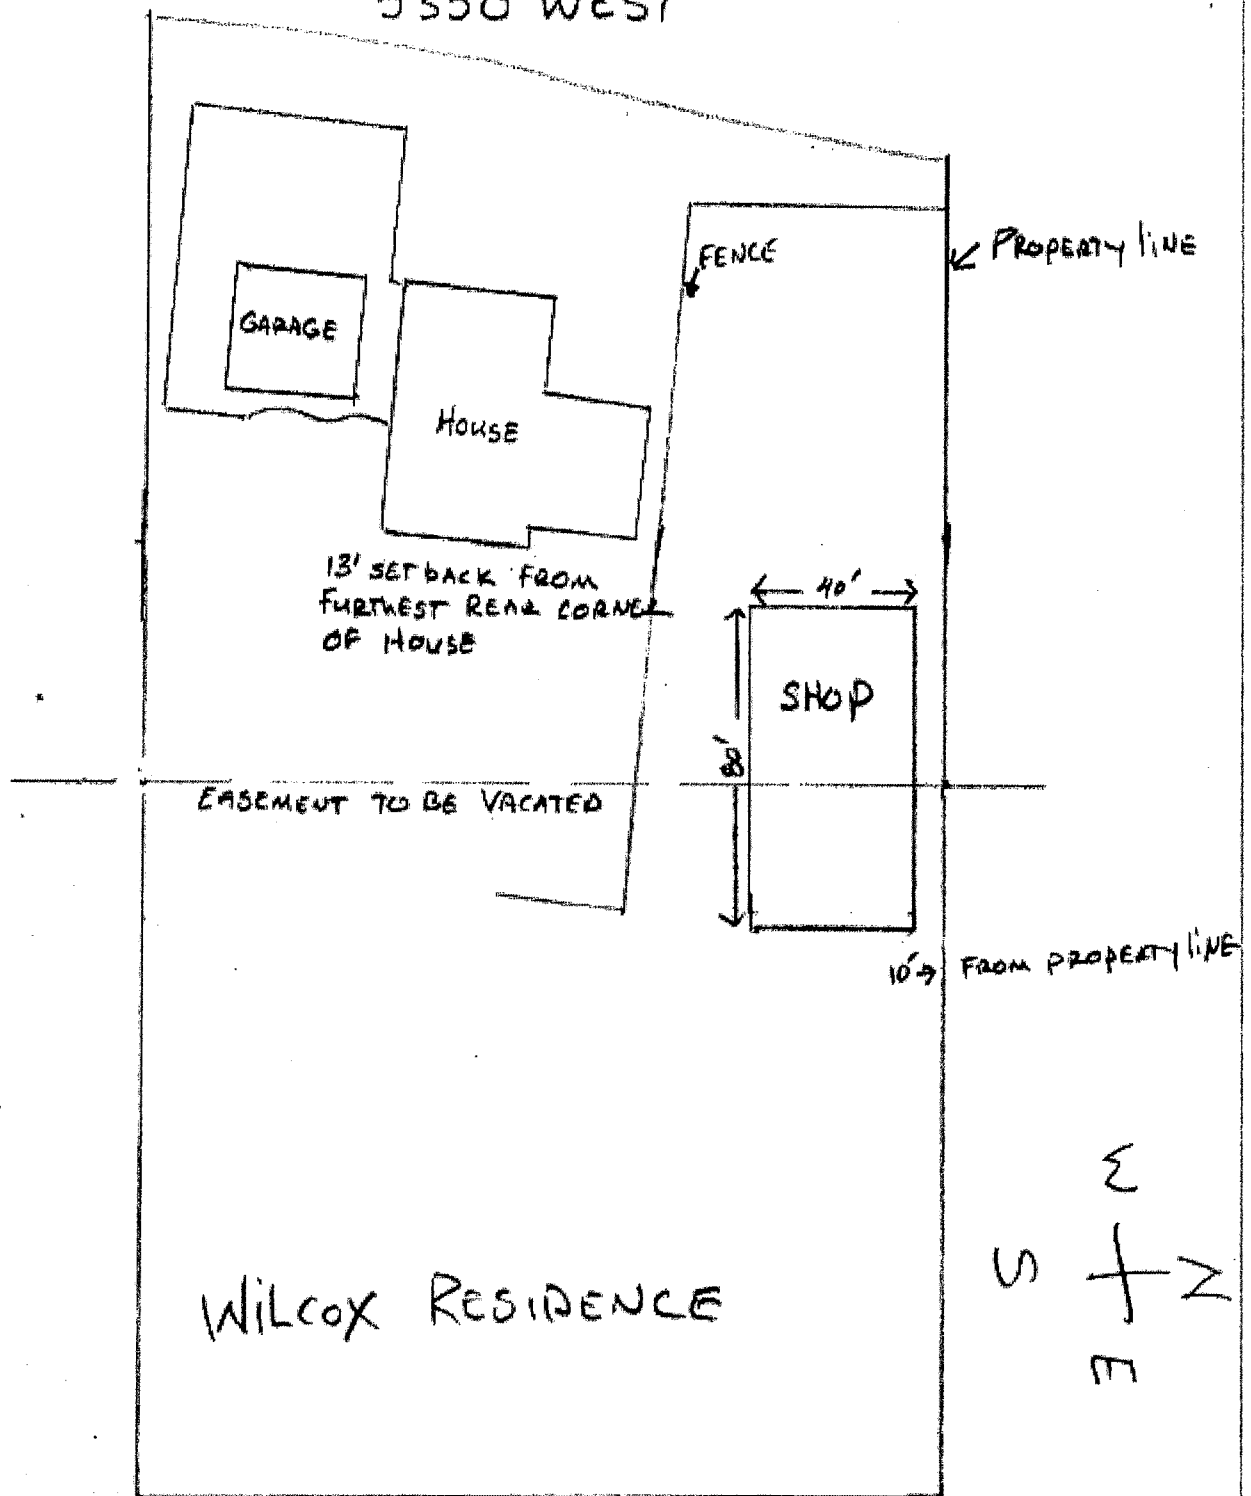 WEST
FENCE
PROPERTY LINE
GARAGE
HOUSE
13' SETBACK FROM
FURTHEST REAR CORNER
OF HOUSE
40'
SHOP
80'
EASEMENT TO BE VACATED
10' FROM PROPERTY LINE
W
S
N
E
WILCOX RESIDENCE